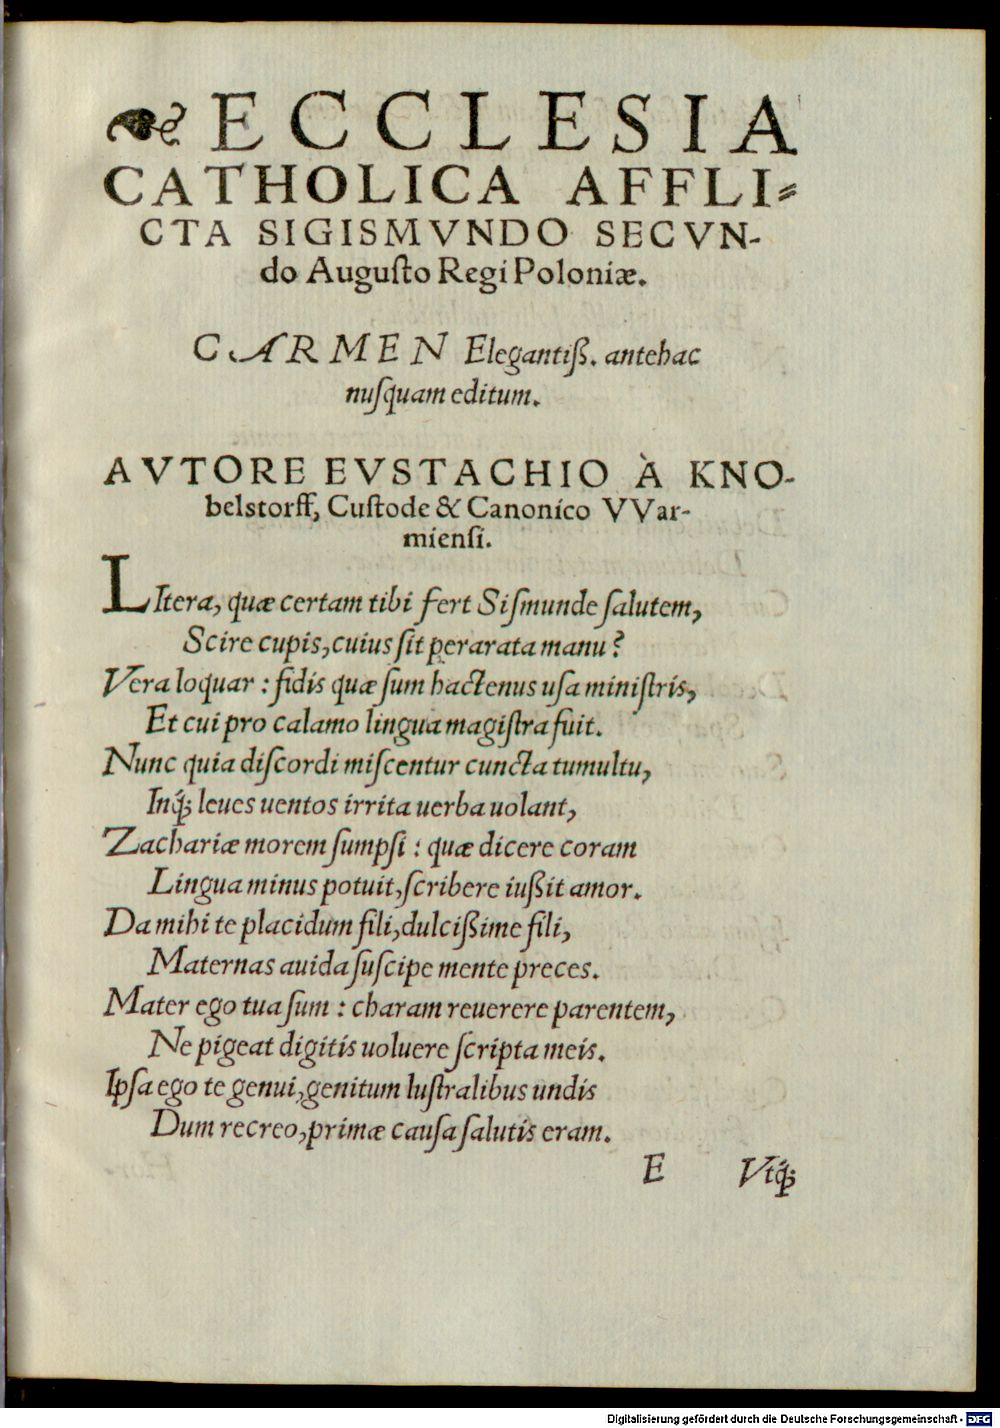 ECCLESIA
CATHOLICA AFFLI-
CTA SIGISMVNDO SECVN-
do Auguſto Regi Poloniæ.
CARMEN Elegantiß. antehac
nuſquam editum.
AVTORE EVSTACHIO À KNO-
belstorff, Cuſtode & Canonico VVar-
mienſi.
LItera, quæ certam tibi fert Siſmunde ſalutem,
Scire cupis, cuius ſit perarata manu?
Vera loquar: fidis quæ ſum hactenus uſa miniſtris,
Et cui pro calamo lingua magiſtra fuit.
Nunc quia diſcordi miſcentur cuncta tumultu,
Inq́; leues uentos irrita uerba uolant,
Zachariæ morem ſumpſi: quæ dicere coram
Lingua minus potuit, ſcribere iußit amor.
Da mihi te placidum fili, dulcißime fili,
Maternas auida ſuſcipe mente preces.
Mater ego tua ſum: charam reuerere parentem,
Ne pigeat digitis uoluere ſcripta meis.
Ipſa ego te genui, genitum luſtralibus undis
Dum recreo, primæ cauſa ſalutis eram.
E Vtq́;
Digitalisierung gefördert durch die Deutsche Forschungsgemeinschaft - DFG